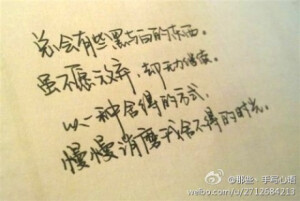 总会有些黑与白的东西。
虽不愿放弃,却无力偎依。
以一种舍得的方式,
慢慢消磨我舍不得的时光。
@那些、手写心语
weibo.com/j/2712684213